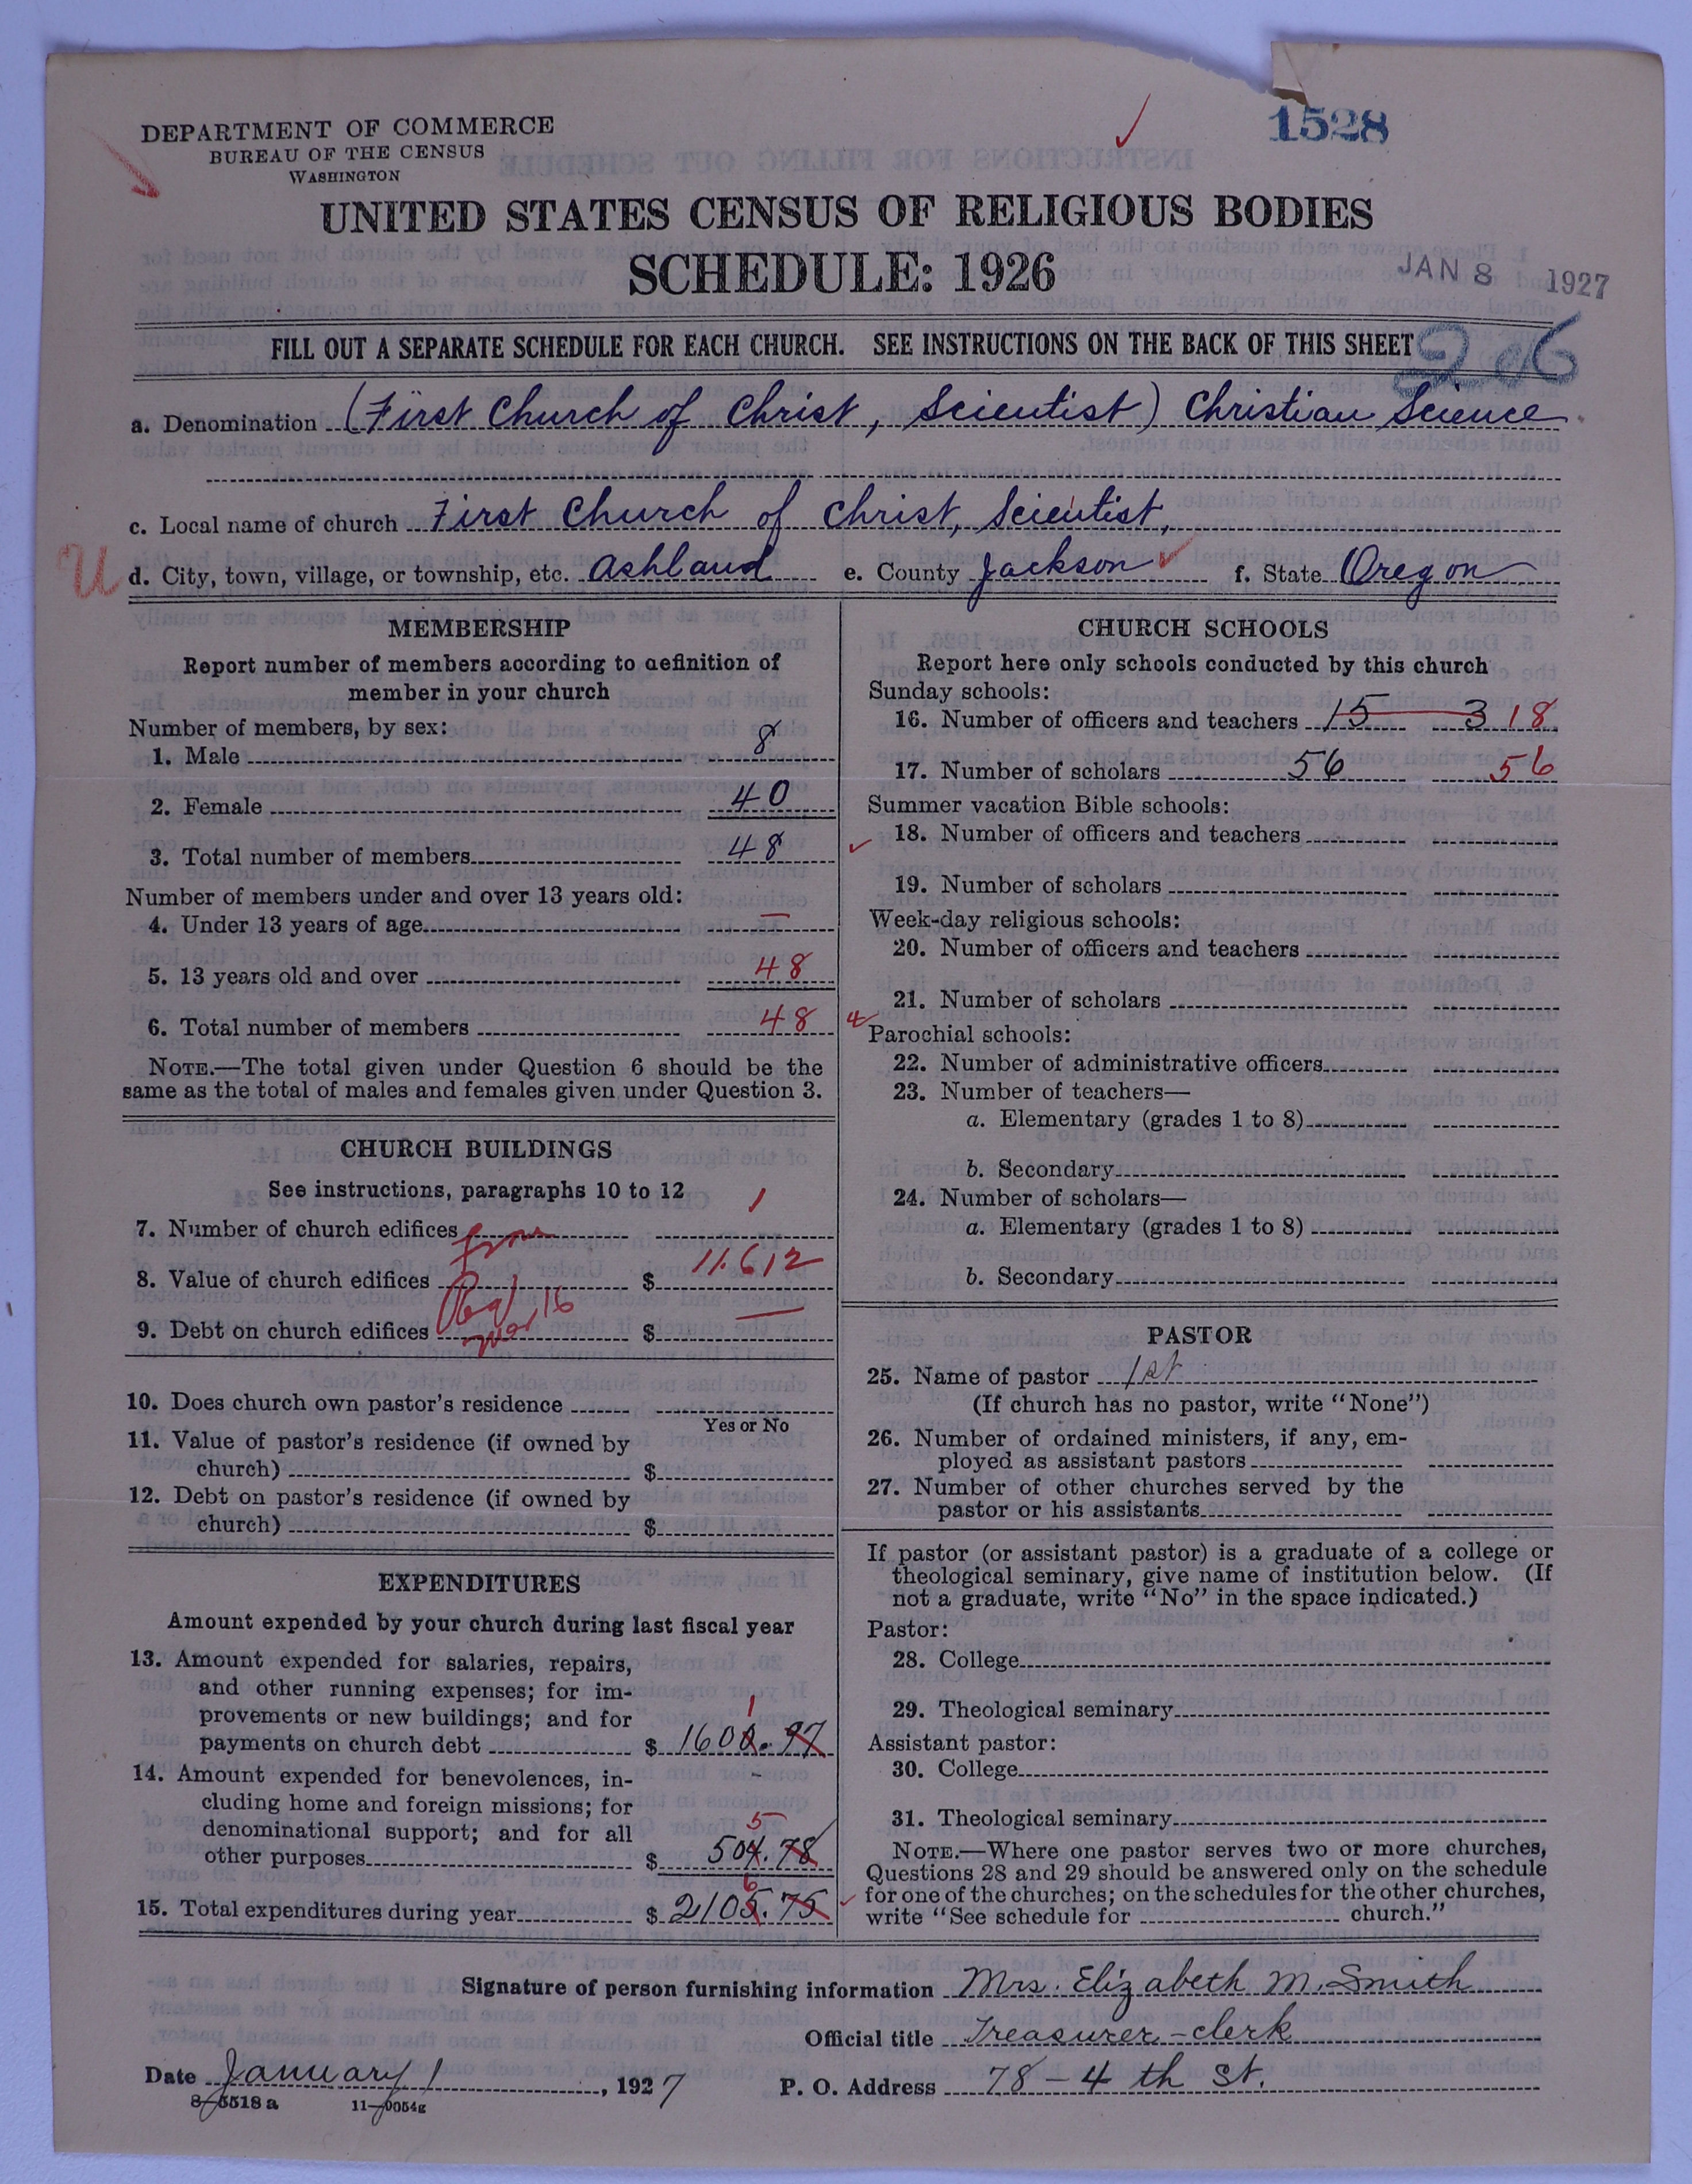 1528
DEPARTMENT OF COMMERCE
BUREAU OF THE CENSUS
WASHINGTON
UNITED STATES CENSUS OF RELIGIOUS BODIES
SCHEDULE: 1926
JAN 8 1927
FILL OUT A SEPARATE SCHEDULE FOR EACH CHURCH. SEE INSTRUCTIONS ON THE BACK OF THIS SHEET
206
a. Denomination (First Church of Christ, Scientist) Christian Science
c. Local name of church First Church of Christ, Scientist,
U
d. City, town, village, or township, etc. Ashland e. County Jackson f. State Oregon
MEMBERSHIP
Report number of members according to definition of
member in your church
Number of members, by sex:
1. Male 8
2. Female 40
3. Total number of members 48
Number of members under and over 13 years old:
4. Under 13 years of age —
5. 13 years old and over 48
6. Total number of members 48
NOTE.—The total given under Question 6 should be the
same as the total of males and females given under Question 3.
CHURCH BUILDINGS
See instructions, paragraphs 10 to 12
7. Number of church edifices 1
from
8. Value of church edifices $ 11.612
16
9. Debt on church edifices $ —
10. Does church own pastor's residence
Yes or No
11. Value of pastor's residence (if owned by
church) $
12. Debt on pastor's residence (if owned by
church) $
EXPENDITURES
Amount expended by your church during last fiscal year
13. Amount expended for salaries, repairs,
and other running expenses; for im-
provements or new buildings; and for
1
payments on church debt $ 1600.97
14. Amount expended for benevolences, in-
cluding home and foreign missions; for
denominational support; and for all
5
other purposes $ 504.78
6
15. Total expenditures during year $ 2105.75
CHURCH SCHOOLS
Report here only schools conducted by this church
Sunday schools:
16. Number of officers and teachers 15 3 18
17. Number of scholars 56 56
Summer vacation Bible schools:
18. Number of officers and teachers
19. Number of scholars
Week-day religious schools:
20. Number of officers and teachers
21. Number of scholars
Parochial schools:
22. Number of administrative officers
23. Number of teachers—
a. Elementary (grades 1 to 8)
b. Secondary
24. Number of scholars—
a. Elementary (grades 1 to 8)
b. Secondary
PASTOR
25. Name of pastor 1st
(If church has no pastor, write "None")
26. Number of ordained ministers, if any, em-
ployed as assistant pastors
27. Number of other churches served by the
pastor or his assistants
If pastor (or assistant pastor) is a graduate of a college or
theological seminary, give name of institution below. (If
not a graduate, write "No" in the space indicated.)
Pastor:
28. College
29. Theological seminary
Assistant pastor:
30. College
31. Theological seminary
NOTE.—Where one pastor serves two or more churches,
Questions 28 and 29 should be answered only on the schedule
for one of the churches; on the schedules for the other churches,
write "See schedule for church."
Signature of person furnishing information Mrs. Elizabeth M. Smith
Official title Treasurer-clerk
Date January 1, 1927 P. O. Address 78-4 th St.
8-5518a 11-9054g